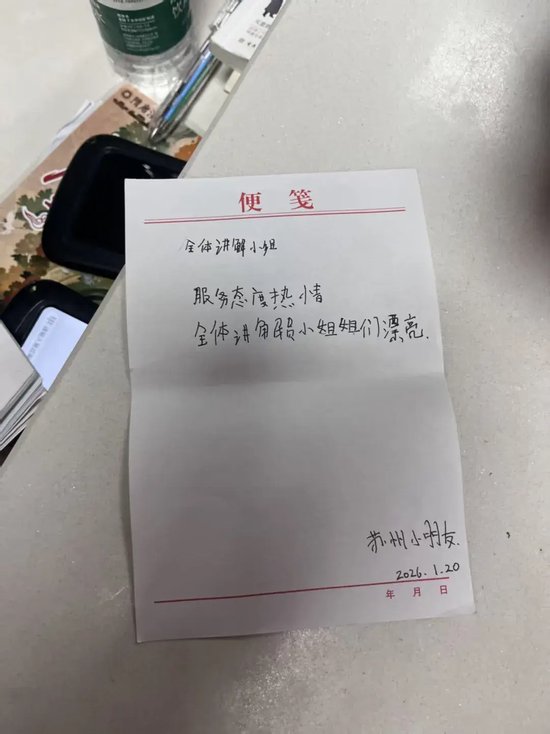 便笺
全体讲解小姐
服务态度热情
全体讲解员小姐姐们漂亮.
苏州小朋友.
2026.1.20
年 月 日